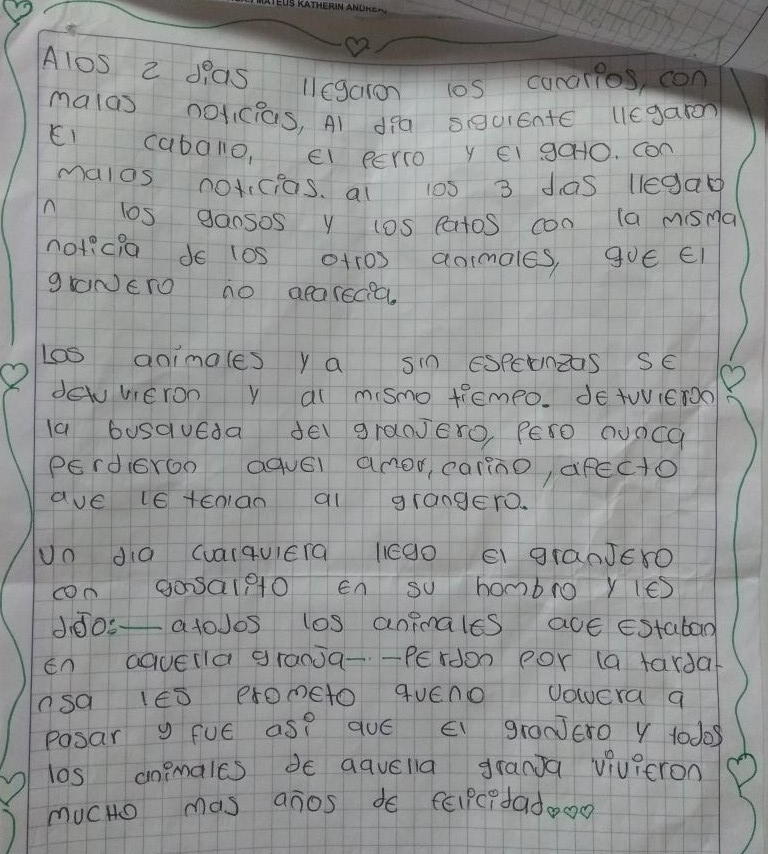 MATEUS KATHERIN ANDREA
Alos 2 dias llegaron los canarios, con
malas noticias, Al dia siguiente llegaron
El caballo, El perro y El gato. con
malas noticias. al los 3 dias llegab
n los gansos y los patos con la misma
noticia de los otros animales, que El
granjero no aparecia.
Los animales y a sin esperinzas se
detuvieron y al mismo tiempo. detuvieron
la busqueda del granjero, Pero nunca
perdieron aquel amor, cariño, afecto
que le tenian al grangero.
un dia cualquiera llego El granjero
con gosalito en su hombro y les
dijo:— atodos los animales que Estaban
En aquella granja-·-perdon por la tarda-
nsa les prometo queno volvera a
pasar y fue asi que El granjero y todos
los animales de aquella granja vivieron
mucho mas años de felicidad